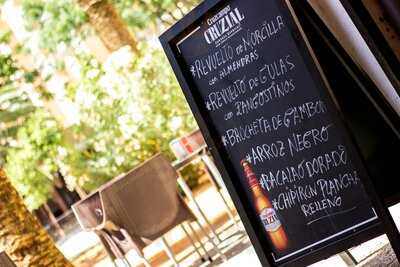 CRUZIAL
*REVUELTO DE MORCILLA
CON ALMENDRAS
*REVUELTO DE GULAS
CON LANGOSTINOS
*BROCHETA DE GAMBON
*ARROZ NEGRO
*BACALAO DORADO
*CHIPIRON PLANCHA
RELLENO